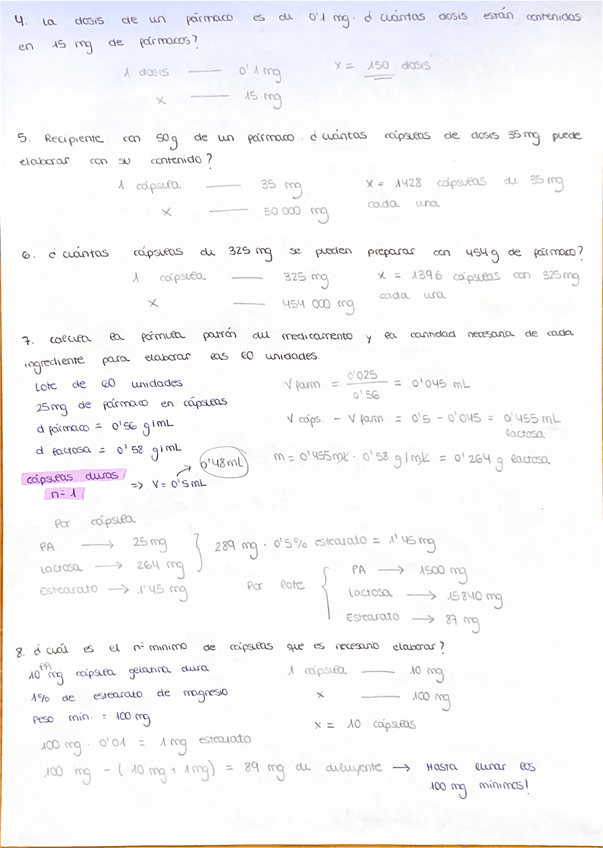 4. La dosis de un fármaco es de 0'1 mg. ¿ cuántas dosis están contenidas
en 15 mg de fármacos?
1 dosis —— 0'1 mg
x = 150 dosis
x —— 15 mg
5. Recipiente con 50g de un fármaco. ¿ cuántas cápsulas de dosis 35 mg puede
elaborar con su contenido?
1 cápsula —— 35 mg
x = 1428 cápsulas de 35 mg
cada una
x —— 50 000 mg
6. ¿ cuántas cápsulas de 325 mg se pueden preparar con 454 g de fármaco?
1 cápsula —— 325 mg
x = 1396 cápsulas con 325 mg
cada una
x —— 454 000 mg
7. calcula la fórmula patrón del medicamento y la cantidad necesaria de cada
ingrediente para elaborar las 60 unidades.
Lote de 60 unidades
25 mg de fármaco en cápsulas
d fármaco = 0'56 g/mL
d lactosa = 0'58 g/mL
cápsulas duras
nº 1
=> V = 0'5 mL
0'48 mL
V farm = 0'025 / 0'56 = 0'045 mL
V cáps. - V farm = 0'5 - 0'045 = 0'455 mL
lactosa
m = 0'455 mL · 0'58 g/mL = 0'264 g lactosa
Por cápsula
PA → 25 mg
Lactosa → 264 mg
289 mg · 0'5% estearato = 1'45 mg
Estearato → 1'45 mg
Por lote
PA → 1500 mg
Lactosa → 15840 mg
Estearato → 87 mg
8. ¿ cuál es el nº mínimo de cápsulas que es necesario elaborar?
PA
10 mg cápsula gelatina dura
1% de estearato de magnesio
Peso mín. = 100 mg
1 cápsula —— 10 mg
x —— 100 mg
x = 10 cápsulas
100 mg · 0'01 = 1 mg estearato
100 mg - ( 10 mg + 1 mg) = 89 mg de diluyente → Hasta llenar los
100 mg mínimos!